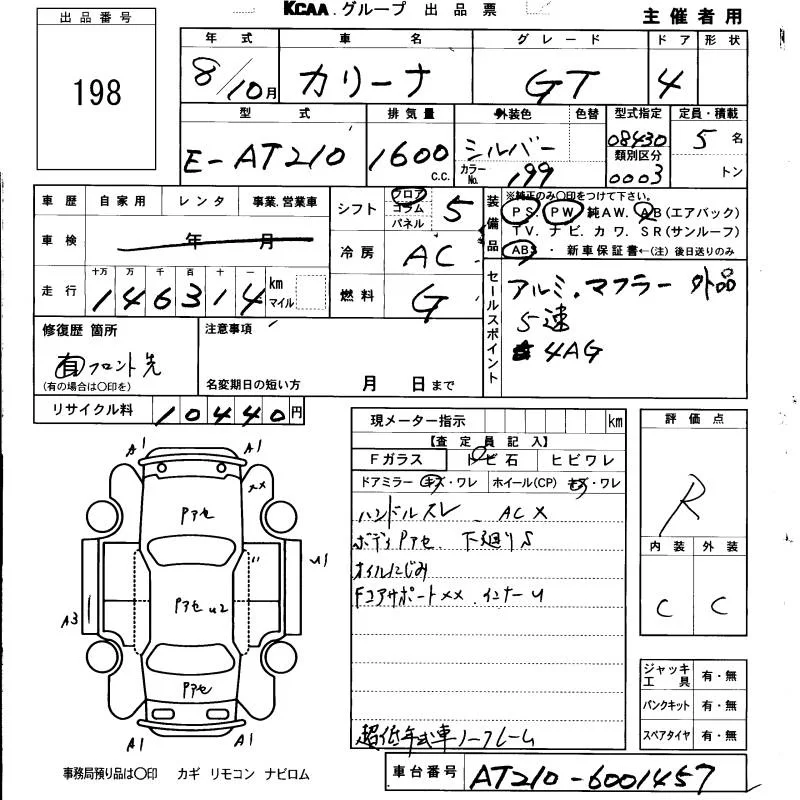 KCAA.グループ 出品票
主催者用
出品番号
198
年式 車名 グレード ドア 形状
8/10月 カリーナ GT 4
型式 排気量 外装色 色替 型式指定 定員・積載
E-AT210 1600 C.C. シルバー カラーNo. 199 08430 類別区分 0003 5 名 トン
車歴 自家用 レンタ 事業.営業車
車検 年 月
走行 十万 万 千 百 十 一
1 4 6 3 1 4 km マイル
シフト フロア コラム パネル 5
冷房 AC
燃料 G
装備品 ※純正のみ○印をつけて下さい。
PS. PW 純AW. AB(エアバック)
TV. ナビ. カワ. SR(サンルーフ)
ABS・新車保証書←(注)後日送りのみ
セールスポイント
アルミ.マフラー 外品
5速
4AG
修復歴 箇所
有 フロント先
(有の場合は○印を)
注意事項
名変期日の短い方 月 日まで
リサイクル料 10440円
現メーター指示 km
【査定員記入】
Fガラス トビ石 ヒビワレ
ドアミラー キズ・ワレ ホイール(CP) キズ・ワレ
ハンドルスレ ACX
ボディPアセ. 下廻りS
オイルにじみ
Fコアサポートxx.インナーU
超低年式車ノークレーム
評価点
R
内装 外装
C C
ジャッキ工具 有・無
パンクキット 有・無
スペアタイヤ 有・無
A1 A1
xx
Pアセ
U1
Pアセ U2
A3
Pアセ
A1 A1
事務局預り品は○印 カギ リモコン ナビロム
車台番号 AT210-6001457